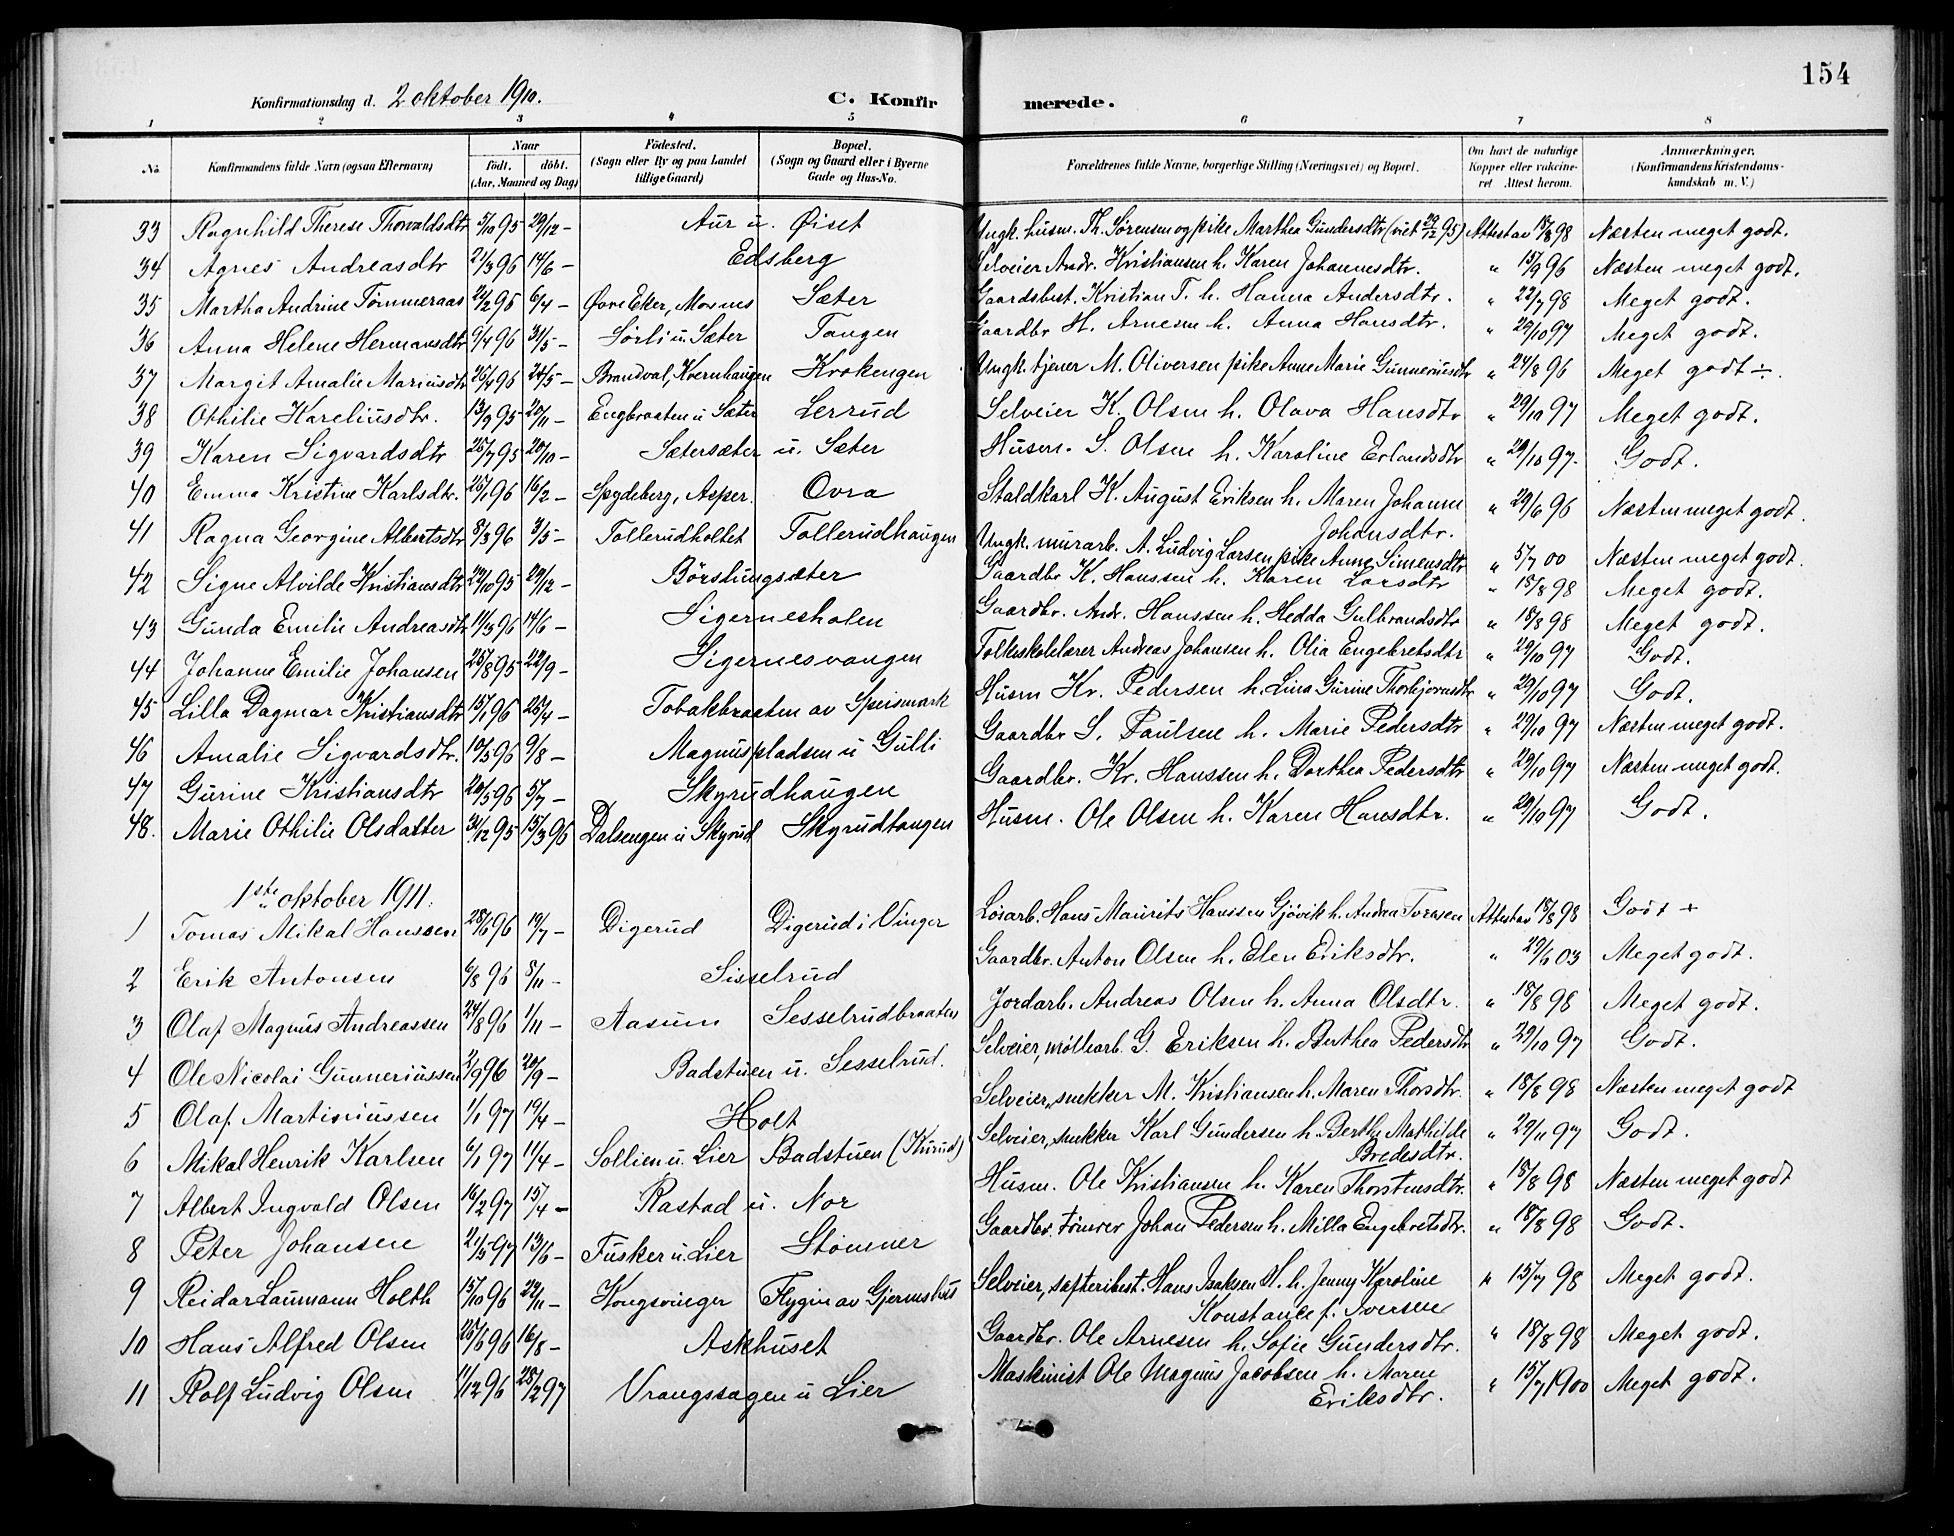 154
Konfirmationsdag d. 2 oktober 1910. C. Konfirmerede.
1 2 3 4 5 6 7 8
No. Konfirmandens fulde Navn (ogsaa Efternavn) Naar født. døbt. (Aar, Maaned og Dag) Fødested. (Sogn eller By og paa Landet tillige Gaard) Bopæl. (Sogn og Gaard eller i Byerne Gade og Hus-No. Forældrenes fulde Navne, borgerlige Stilling (Næringsvei) og Bopæl. Om havt de naturlige Kopper eller vakcineret Attest herom. Anmærkninger. (Konfirmandens Kristendomskundskab m. V.)
33 Ragnhild Therese Thorvaldsdtr 5/10 95 29/12 – Aur u. Øiset Ungk. husm. Th. Sørensen og pike Marthea Gundersdtr (viet 29/12 95) Attest av 18/8 98 Næsten meget godt.
34 Agnes Andreasdtr 21/3 96 14/6 – Edsberg Selveier Andr. Kristiansen h. Karen Johannesdtr. " 15/9 96 Næsten meget godt.
35 Martha Andrine Tømmeraas 2/2 96 6/4 – Øvre Eker, Mosnes Sæter Gaardsbest. Kristian T. h. Hanna Andersdtr. " 22/7 98 Meget godt.
36 Anna Helene Hermansdtr 6/4 96 31/5 – Sørli u Sæter Tangen Gaardbr H. Arnesen h. Anna Hansdtr. " 29/10 97 Meget godt.
37 Margit Amalie Mariusdtr 26/4 96 24/5 – Brandval, Kvernhaugen Krokengen Ungk. tjener M. Oliversen pike Anne Marie Gunneriusdtr " 24/8 96 Meget godt ÷.
38 Othilie Kareliusdtr. 13/9 95 20/11 – Engbraaten u Sæter Lerrud Selveier K. Olsen h. Olava Hansdtr " 29/10 97 Meget godt.
39 Karen Sigvardsdtr 25/7 95 20/10 – Sætersæter u. Sæter Husm. S. Olsen h. Karoline Erlandsdtr " 29/10 97. Godt.
40 Emma Kristine Karlsdtr. 25/1 96 16/2 – Spydeberg, Asper. Ovra Staldkarl K. August Eriksen h. Maren Johanne Johansdtr. " 29/6 96 Næsten meget godt.
41 Ragna Georgine Albertsdtr 8/3 96 3/5 – Tollerudholtet Tollerudhaugen Ungk. murarb. A. Ludvig Larsen pike Anne Simensdtr " 5/7 00 Næsten meget godt.
42 Signe Alvilde Kristiansdtr 29/10 95 29/12 – Børslungsæter Gaardbr K. Hanssen h. Karen Larsdtr " 18/8 98 Meget godt.
43 Gunda Emilie Andreasdtr 11/3 96 14/6 – Sigernesholen Gaardbr. Andr. Hanssen h. Hedda Gulbrandsdtr " 18/8 98 Meget godt.
44 Johanne Emilie Johansen 25/8 95 22/9 – Sigernesvangen Folkeskolelærer Andreas Johansen h. Olia Engebretsdtr " 29/10 97 Godt.
45 Lilla Dagmar Kristiansdtr 15/1 96 25/4 – Tobakbraaten av Speismark Husm Kr. Pedersen h. Lina Gurine Thorbjørnsdtr " 29/10 97 Godt.
46 Amalie Sigvardsdtr. 10/5 96 9/8 – Magnuspladsen u Gulli Gaardbr S. Paulsen h. Marie Pedersdtr " 29/10 97 Næsten meget godt.
47 Gurine Kristiansdtr 20/5 96 5/7 – Skyrudhaugen Gaardbr. Kr. Hanssen h. Dorthea Pedersdtr " 29/10 97 Næsten meget godt.
48. Marie Othilie Olsdatter 31/12 95 15/3 96 Dalsengen u Skyrud Skyrudtangen Husm. Ole Olsen h. Karen Hansdtr. " 29/10 97 Godt.
1ste oktober 1911.
1 Tomas Mikal Hanssen 28/6 96 19/7 – Digerud Digerud i Vinger Løsarb. Hans Maurits Hanssen Gjøvik h. Andrea Toresen Attest av 18/8 98 Godt +
2 Erik Antonsen 6/8 96 8/11 – Sisselrud Gaardbr. Anton Olsen h. Elen Eriksdtr. " 29/6 03 Meget godt.
3 Olaf Magnus Andreassen 24/8 96 1/11 – Aasum Sesselrudbraaten Jordarb. Andreas Olsen h. Anna Olsdtr. " 18/8 98 Meget godt.
4 Ole Nicolai Gunneriussen 2/9 96 20/9 – Badstuen u. Sesselrud. Selveier, møllearb. G. Eriksen h. Berthea Pedersdtr " 29/10 97 Godt.
5 Olaf Martiniussen 1/1 97 19/4 – Holt Selveier, snekker M. Kristiansen h. Maren Thorsdtr. " 18/8 98 Næsten meget godt
6 Mikal Henrik Karlsen 6/1 97 11/4 – Sollien u. Lier Badstuen (Kurud) Selveier, snekker Karl Gundersen h. Berthe Mathilde Bredesdtr. " 29/11 97 Godt.
7 Albert Ingvald Olsen 16/2 97 15/4 – Rastad u. Nor Husm. Ole Kristiansen h. Karen Thorstensdtr. " 18/8 98 Næsten meget godt
8 Peter Johansen 21/5 97 13/6 – Fusker u. Lier Stømner Gaardbr. Tømrer Johan Pedersen h. Milla Engebretsdtr. " 18/8 98 Godt.
9 Reidar Laumann Holth 15/10 96 22/11 – Kongsvinger Flygin av Gjermshus Selveier, Hans Isaksen H. h. Jenny Karoline Konstance f. Iversen " 15/7 98 Meget godt.
10 Hans Alfred Olsen 25/6 96 16/8 – Askhuset Gaardbr. Ole Arnesen h. Sofie Gundersdtr. " 18/8 98 Meget godt.
11 Rolf Ludvig Olsen 11/12 96 28/2 97 Vrangssagen u Lier Maskinist Ole Magnus Jacobsen h. Maren Eriksdtr. " 15/7 1900 Meget godt.